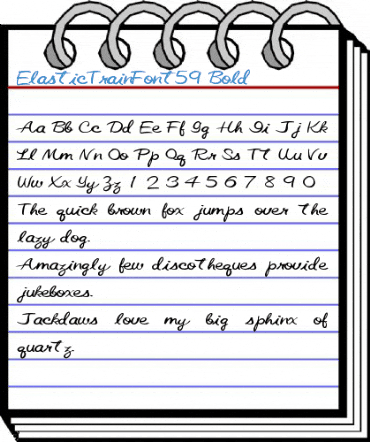 ElasticTrainFont59 Bold
Aa Bb Cc Dd Ee Ff Gg Hh Ii Jj Kk
Ll Mm Nn Oo Pp Qq Rr Ss Tt Uu Vv
Ww Xx Yy Zz 1 2 3 4 5 6 7 8 9 0
The quick brown fox jumps over the
lazy dog.
Amazingly few discotheques provide
jukeboxes.
Jackdaws love my big sphinx of
quartz.